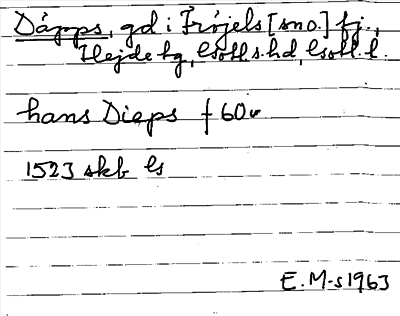 Däpps, gd i Fröjels [sno.] fj.,
Hejde tg, Gotl. s. hd, Gotl. l.
hans Dieps f 60v
1523 skb Gs
E. M-s 1963